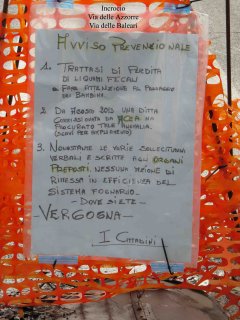 Incrocio
Via delle Azzorre
Via delle Baleari
AVVISO PREVENZIONALE
1. TRATTASI DI PERDITA
DI LIQUAMI FECALI
E FARE ATTENZIONE AL PASSAGGIO
DEI BAMBINI.
2. DA AGOSTO 2013 UNA DITTA
COMMISSIONATA DA ACEA HA
PROCURATO TALE ANOMALIA.
(SCAVI PER AMPLIAMENTO)
3. NONOSTANTE LE VARIE SOLLECITUDINI
VERBALI E SCRITTE AGLI ORGANI
PREPOSTI, NESSUNA AZIONE DI
RIMESSA IN EFFICIENZA DEL
SISTEMA FOGNARIO.
- DOVE SIETE -
- VERGOGNA -
I CITTADINI